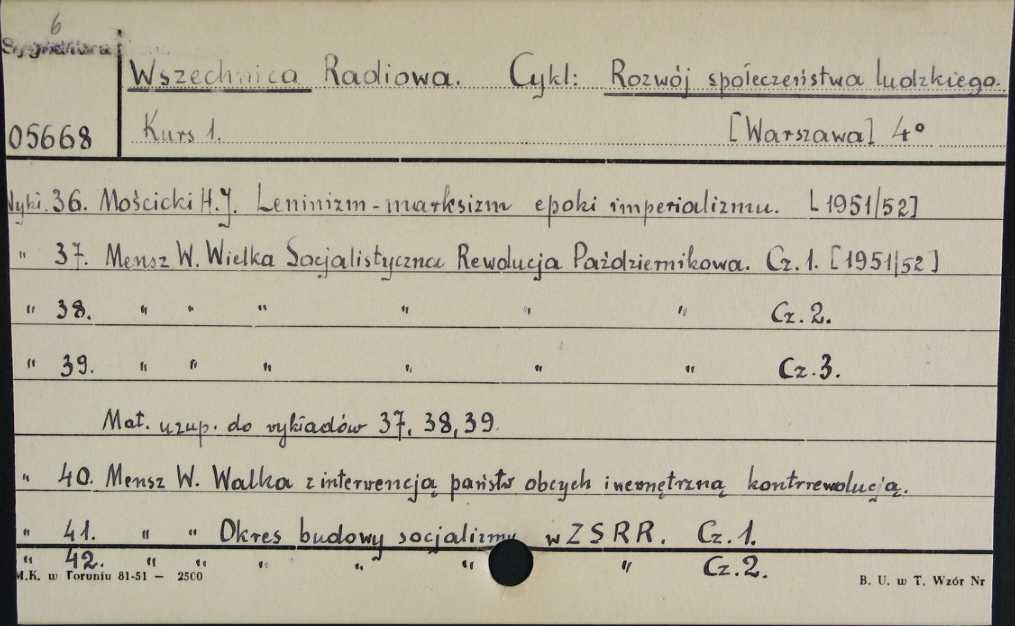 6
Sygnatura
Wszechnica Radiowa. Cykl: Rozwój społeczeństwa ludzkiego.
05668 Kurs 1. [Warszawa] 4°
Wykł. 36. Mościcki H.J. Leninizm - marksizm epoki imperializmu. [1951/52]
" 37. Mensz W. Wielka Socjalistyczna Rewolucja Październikowa. Cz. 1. [1951/52]
" 38. " " " " " " Cz. 2.
" 39. " " " " " " Cz. 3.
Mat. uzup. do wykładów 37, 38, 39.
" 40. Mensz W. Walka z interwencją państw obcych i wewnętrzną kontrrewolucją.
" 41. " " Okres budowy socjalizmu w ZSRR. Cz. 1.
" 42. " " " " " " Cz. 2.
M.K. w Toruniu 81-51 — 2500 B. U. w T. Wzór Nr